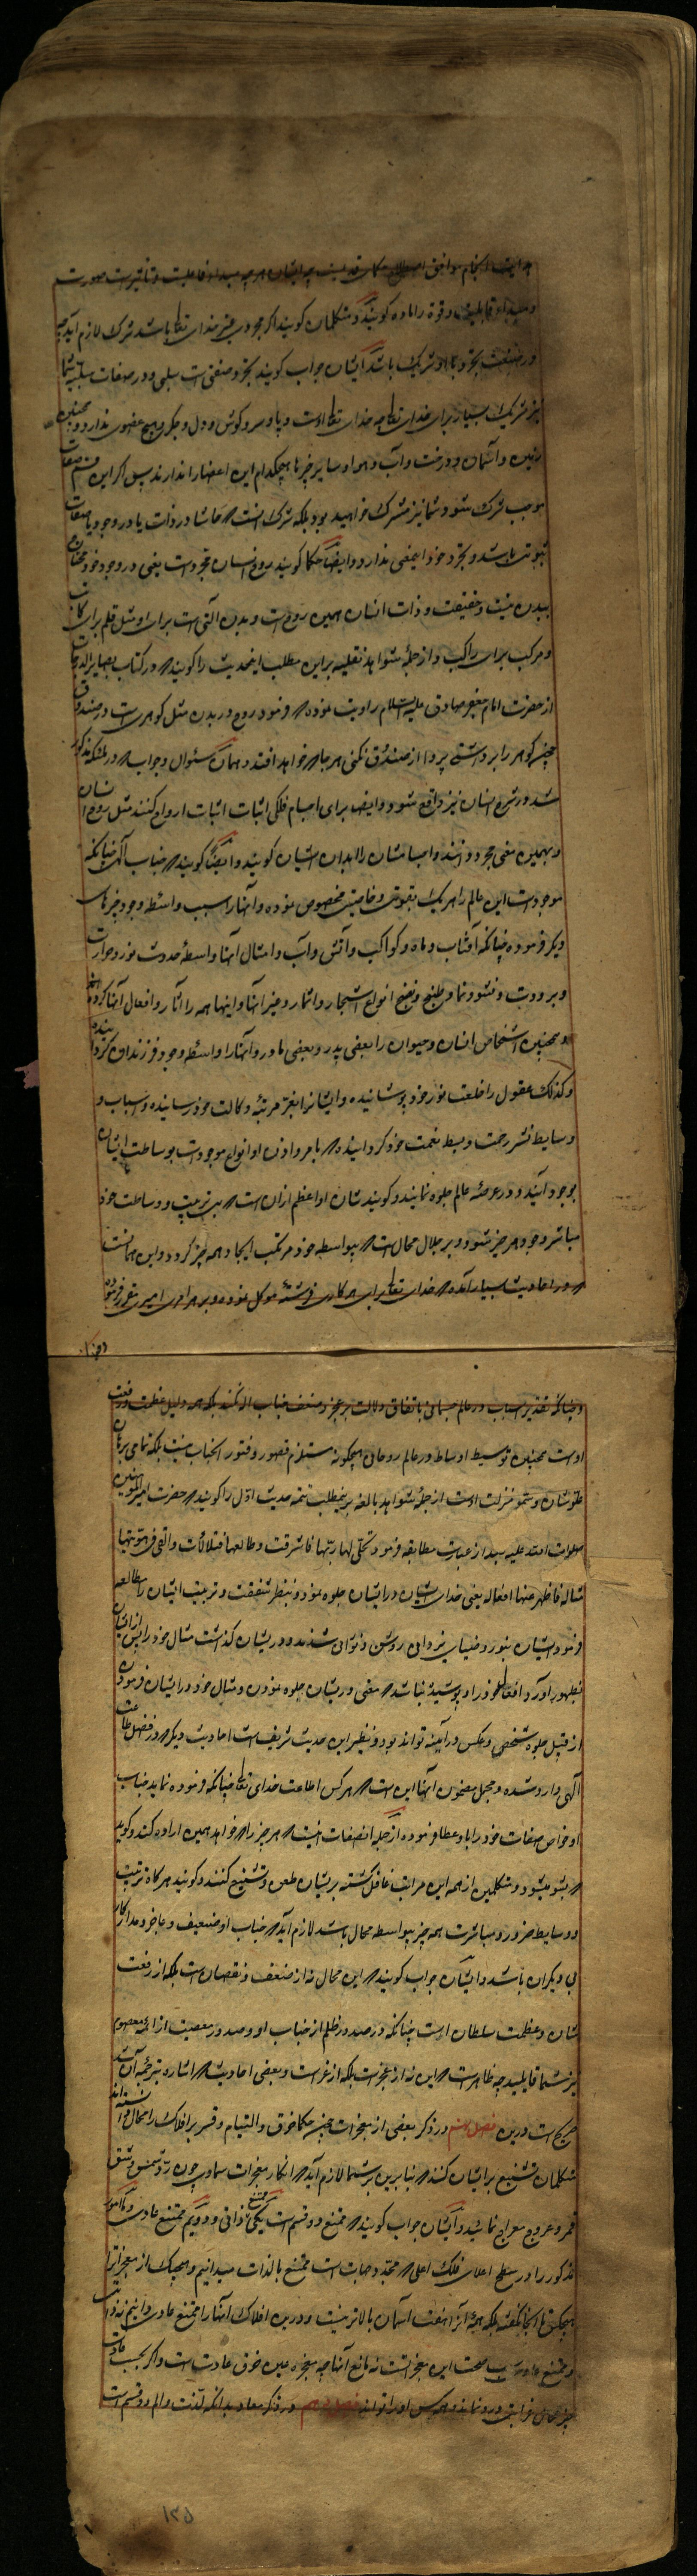 و قوة را ماده کویند و متکلمان کویند اکر مجردی غیر خدای تعالی باشد شرک لازم آید چه
در صنعت تجرد با او شریک باشد ایشان جواب کویند تجرد صفتی است سلبی و در صفات سلبیه شما
نیز شریک بسیار برای خدای تعالی چه خدای تعالی را دست و پا و سر و کوش و دل و جکر و هیچ عضوی ندارد و همچنین
زمین و آسمان و درخت و آب و هوا و سایر چیزها هیچکدام این اعضا را ندارند پس اکر این قسم صفات
موجب شرک شود شما نیز مشرک خواهید بود بلکه شرک آنست که حاشا در ذات یا در وجود یا صفات
ثبوتی باشد و تجرد خود این معنی ندارد و ایضا حکما کویند روح انسان مجرد است یعنی در وجود خود محتاج
ببدن نیست و حقیقت و ذات انسان همین روح است و بدن آلتی است برای او مثل قلم برای کاتب
و مرکب برای راکب و از جمله شواهد نقلیه بر این مطلب این حدیث را کویند که در کتاب بصایر الدرجات
از حضرت امام جعفر صادق علیه السلام روایت نموده که فرمود روح در بدن مثل کوهری است در صندوق
کوهر را برداشتی پروا از صندوق نکنی هر جا که خواهد افتد و همان سئوال و جواب که در ملئکه مذکور
شد در شرح انسان نیز واقع شود و ایضا برای اجسام فلکی اثبات ارواح کنند مثل روح انسان
و بهمین معنی مجرد دانند و اجسامشان را ابدان ایشان کویند و ایضا کویند که جناب الهی چنانکه
موجودات این عالم را هر یک بقوتی و خاصیتی مخصوص نموده و آنها را سبب و واسطه وجود چیزهای
دیکر فرموده چنانکه آفتاب و ماه و کواکب و آتش و آب و امثال آنها واسطه حدوث نور و حرارت
و برودت و نشو و نما و طبخ و نضج انواع اشجار و اثمار و غیر آنها و اینها همه را آثار و افعال آنها کرده
و همچنین اشخاص انسان و حیوان را بعضی پدر و بعضی مادر و آنها را واسطه وجود فرزندان کردانیده
و کذلک عقول را خلعت نور خود پوشانیده و ایشان را بعز مرتبه وکالت خود رسانیده و اسباب و
وسایط نشر رحمت و بسط نعمت خود کردانیده که بامر و اذن او انواع موجودات بوساطت ایشان
بوجود آیند و در عرصه عالم جلوه نمایند و کویند شان او اعظم از آن است که بی ترتیب و وساطت خود
مباشر وجود هر چیز شود و بر جلال محال است که بیواسطه خود مرتکب ایجاد همه چیز کردد و این همانست
که در احادیث بسیار آمده که خدای تعالی برای هر کاری فرشته موکل نموده و بر هر امری امیری مقرر فرموده
و چنانکه تقدیر اسباب در عالم جسمانی باتفاق دلالت بر عجز و ضعف جناب او نکند بلکه همه دلیل عظمت و رفعت
اوست همچنین توسیط اوساط در عالم روحانی هیچکونه مستلزم قصور و فتور آنجناب نیست بلکه تمامی برهان
علو شان و سمو منزلت اوست از جمله شواهد بالغه بر این مطلب تتمه حدیث اول را کویند که حضرت امیر المؤمنین
صلوات الله علیه بعد از عبارت مطابقه فرمود تجلی لها ربها فاشرقت و طالعها فتلألأت و القی فی هویتها
مثاله فاظهر عنها افعاله یعنی خدای ایشان در ایشان جلوه نمود و بنظر شفقت و تربیت ایشان را مطالعه
فرمود ایشان بنور و ضیای یزدانی روشن و نورانی شدند و در ایشان کذاشت مثال خود را پس از ایشان
بظهور آورد افعال خود را و پوشیده نباشد که معنی در ایشان جلوه نمودن و مثال خود در ایشان فرمودن
از قبیل جلوه شخص و عکس در آیینه تواند بود و نظیر این حدیث شریف است احادیث دیکر که در فضل طاعت
الهی وارد شده و مجمل مضمون آنها این است که هر کس اطاعت خدای تعالی چنانکه فرموده نماید جناب
او خواص صفات خود را باو عطا فرموده از جمله آن صفات اینست که هر چیز را که خواهد همین اراده کند و کوید
که بشو میشود و متکلمین از همه این مراتب غافل کشته بر ایشان طعن و تشنیع کنند و کویند هر کاه ترتیب
و وسایط ضرور و مباشرت همه چیز بیواسطه محال باشد لازم آید که جناب او ضعیف و عاجز و مدار کار
بی دیکران باشد و ایشان جواب کویند که این محال نه از ضعف و نقصان است بلکه از رفعت
شان و عظمت سلطان اوست چنانکه در صدور ظلم از جناب او و صدور معصیت از ائمه معصوم
نیز شما قایلید چه ظاهر است که این نه از عجز است بلکه از عز است و بعضی احادیث که اشاره بتزییه آن شد
صریح است درین فصل نهم در ذکر بعضی از معجزات چون حکما خرق و التیام و قسر بر افلاک را محال دانسته اند
متکلمان تشنیع بر ایشان کنند که بنابرین بر شما لازم آید که انکار معجزات سماوی چون رد شمس و شق
قمر و عروج معراج نمایید و ایشان جواب کویند که ممتنع دو قسم است یکی ممتنع ذاتی و دویم ممتنع عادی و ما امور
مذکور را در سطح اعلای فلک اعلی که محدد جهات است ممتنع بالذات میدانیم و هیچیک از معجزات را
هیچکس تا آنجا نکفته بلکه همه از آن هفت آسمان بالاتر نیست و درین افلاک آنها را ممتنع عادی دانیم نه ذاتی
و ممتنع عادی سبب صحت این معجز است نه مانع آنها چه معجزه عین خرق عادت است و اکر بحسب عادت
فصل دهم در ذکر معاد بدانکه لذت و الم دو قسم است
۱۲۵